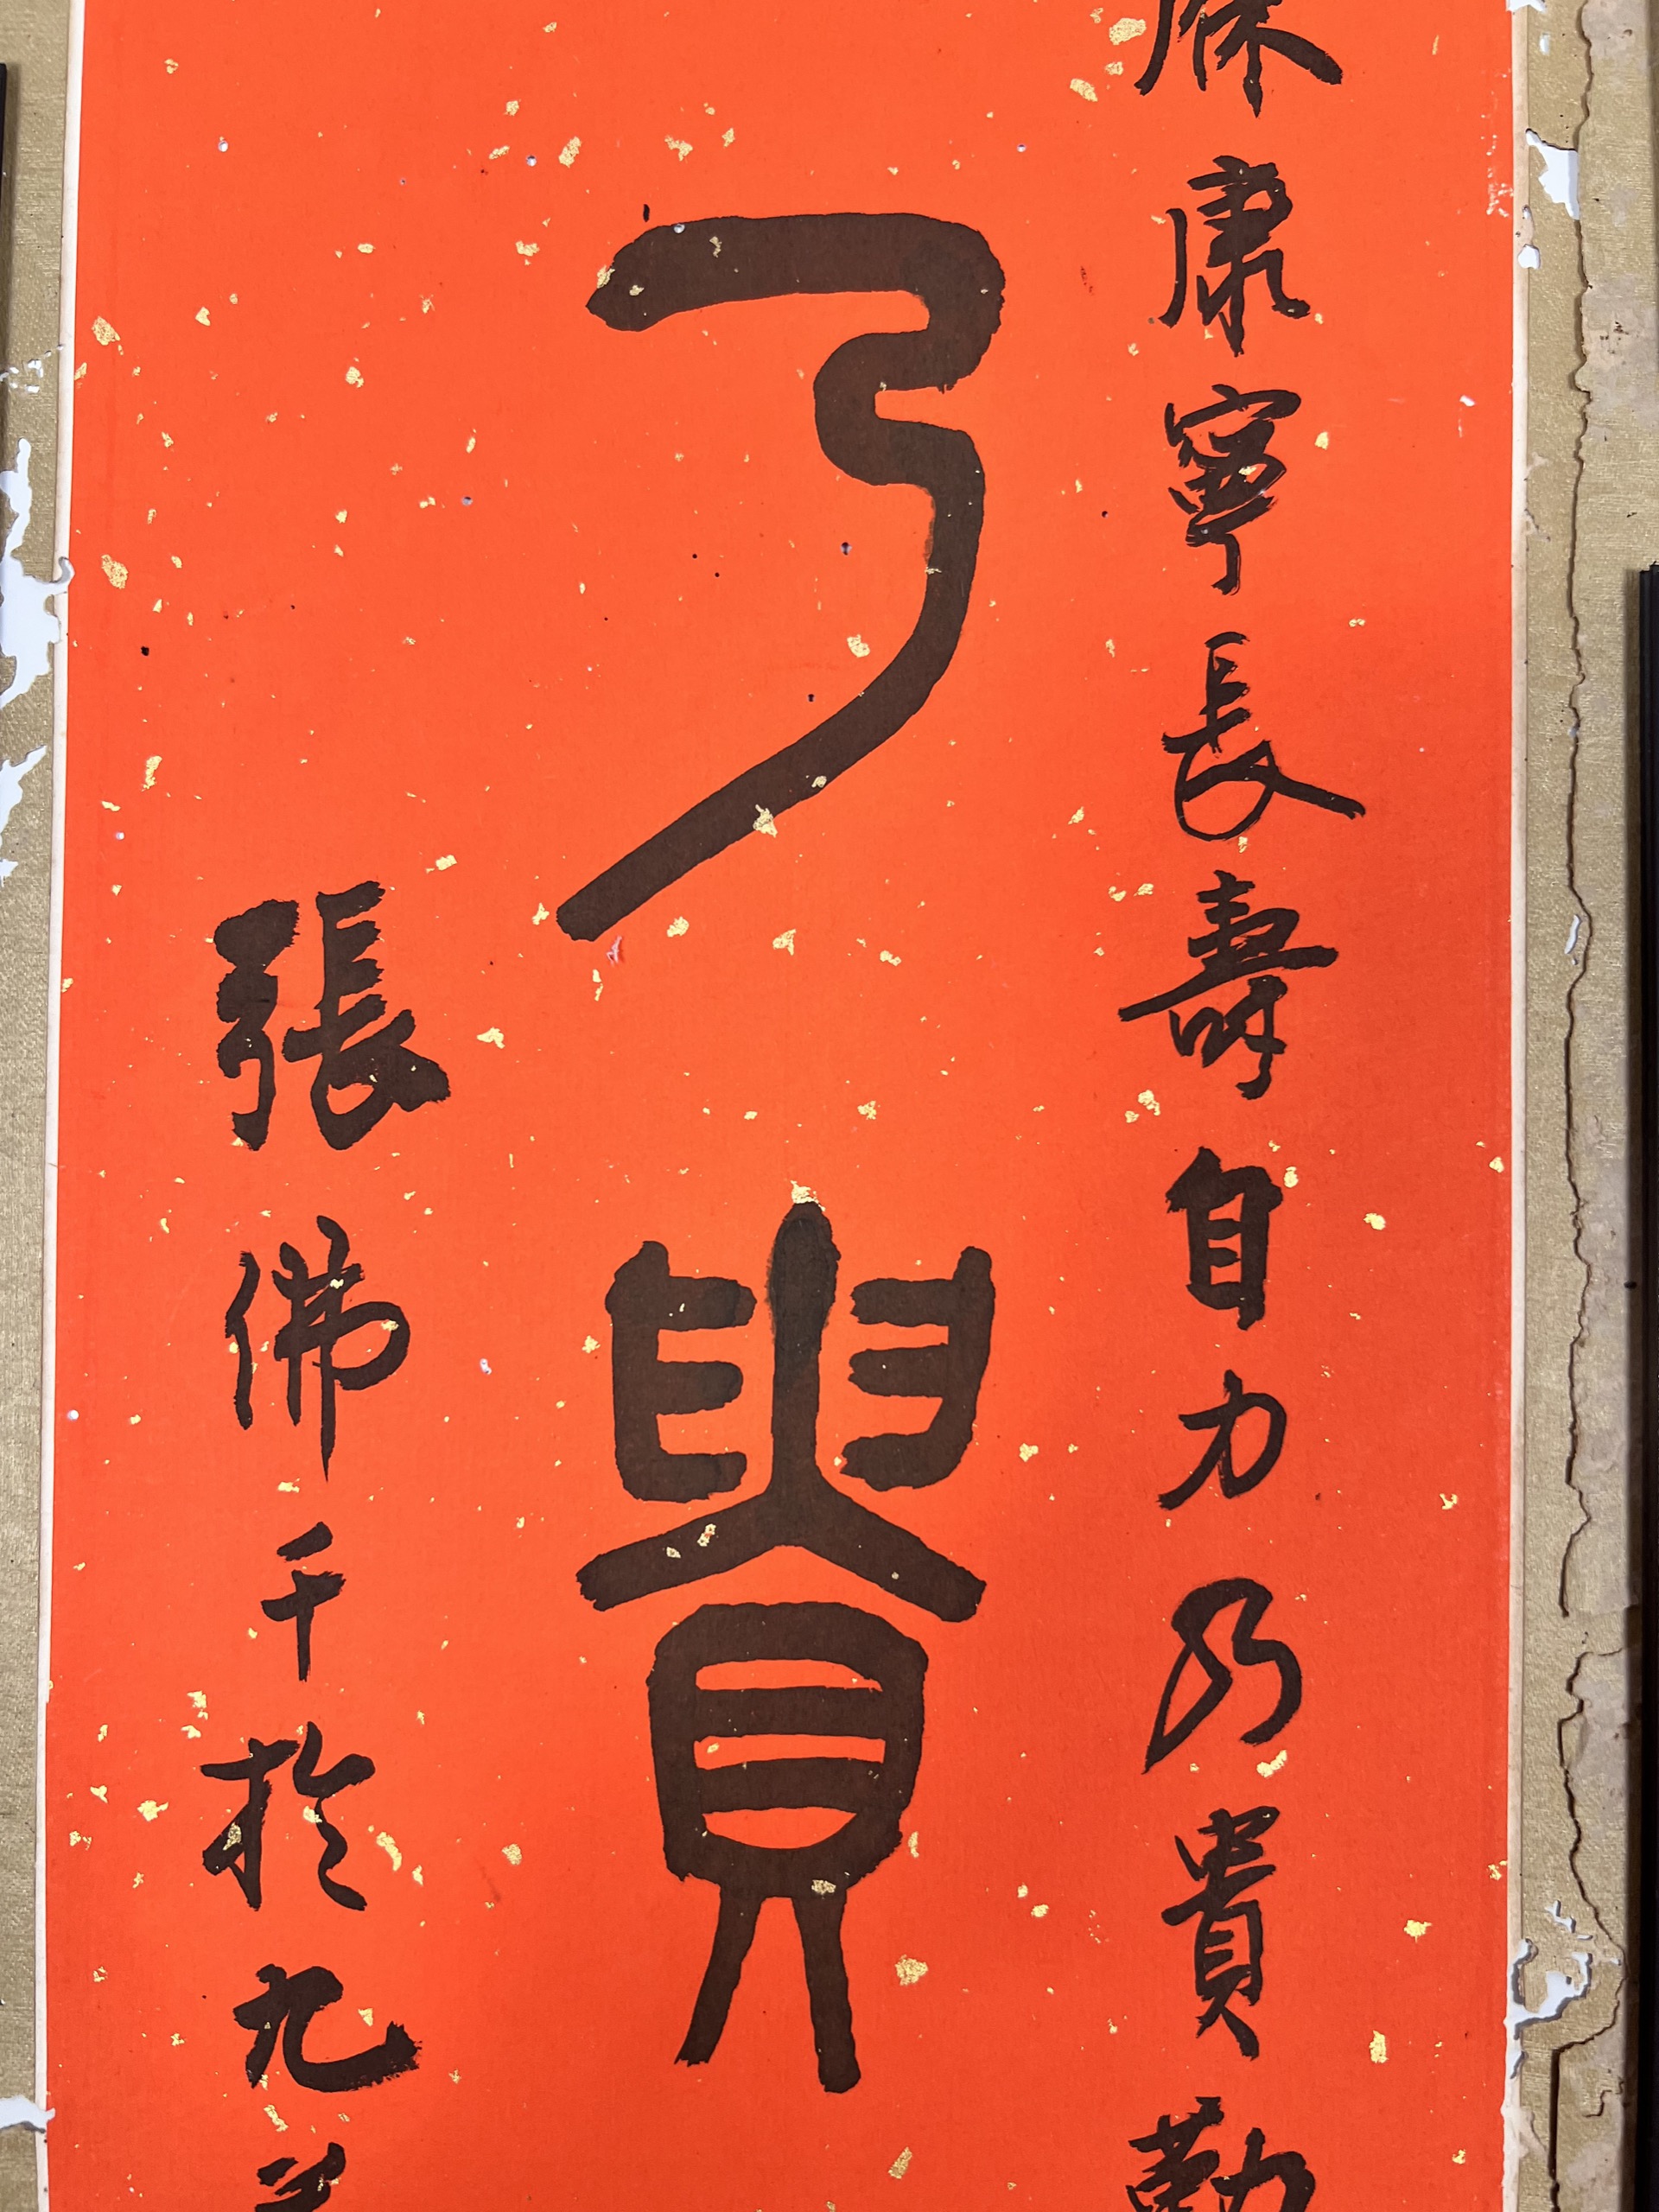 康寧長壽自力乃貴勤
乃貴
張佛千於九